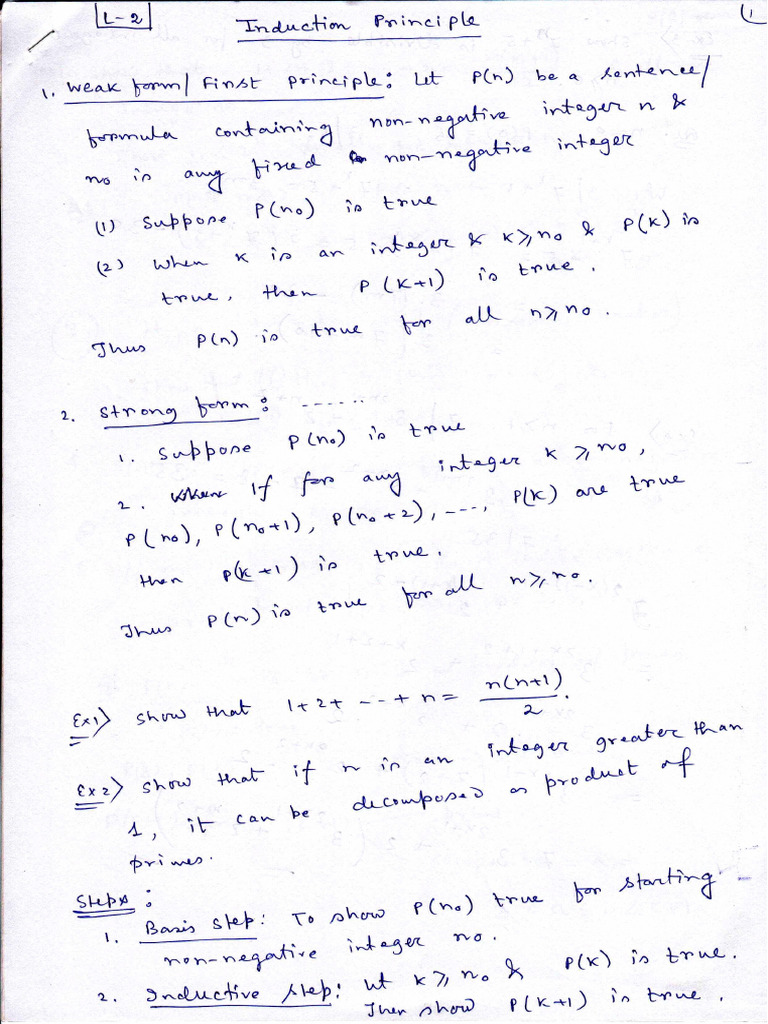 L-2
Induction Principle
1
1. Weak form/ First principle: Let P(n) be a sentence/
formula containing non-negative integer n &
n₀ is any fixed non-negative integer
(1) Suppose P(n₀) is true
(2) When K is an integer & K⩾n₀ & P(K) is
true, then P(K+1) is true.
Thus P(n) is true for all n⩾n₀.
2. Strong form: ------
1. Suppose P(n₀) is true
2. If for any integer K ⩾ n₀,
P(n₀), P(n₀+1), P(n₀+2), ---, P(K) are true
then P(K+1) is true.
Thus P(n) is true for all n⩾n₀.
Ex1) Show that 1+2+ --- + n = n(n+1)/2.
Ex2) Show that if n is an integer greater than
1, it can be decomposed as product of
primes.
Steps:
1. Basis step: To show P(n₀) true for starting
non-negative integer n₀.
2. Inductive step: Let K⩾n₀ & P(K) is true.
Then show P(K+1) is true.